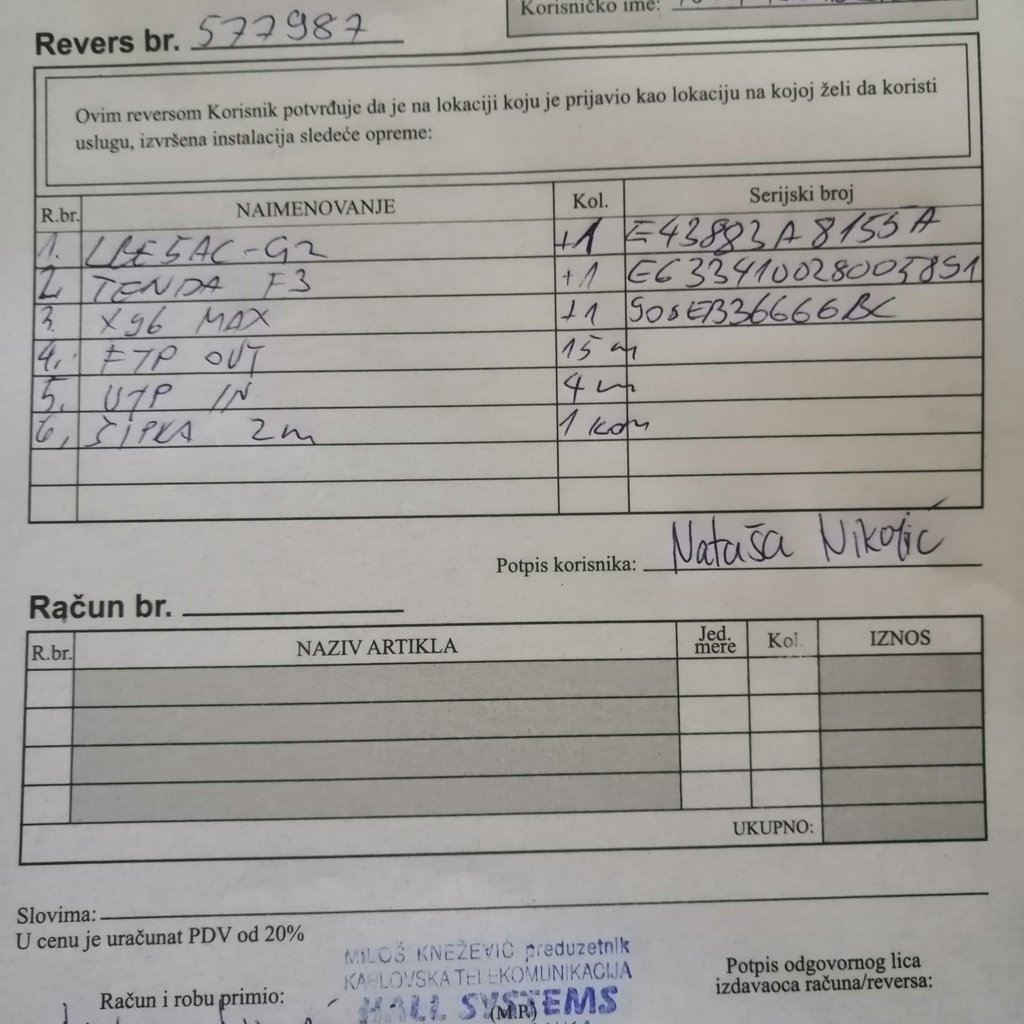 Korisničko ime:
Revers br. 577987
Ovim reversom Korisnik potvrđuje da je na lokaciji koju je prijavio kao lokaciju na kojoj želi da koristi
uslugu, izvršena instalacija sledeće opreme:
R.br. NAIMENOVANJE Kol. Serijski broj
1. LBE5AC-G2 +1 E43883A8155A
2. TENDA F3 +1 E6334100280035851
3. X96 MAX +1 908EB36666BC
4. FTP OUT 15 m
5. UTP IN 4 m
6, ŠIPKA 2m 1 kom
Potpis korisnika: Nataša Nikolić
Račun br.
R.br. NAZIV ARTIKLA Jed. mere Kol. IZNOS
UKUPNO:
Slovima:
U cenu je uračunat PDV od 20%
MILOŠ KNEŽEVIĆ preduzetnik
KARLOVSKA TELEKOMUNIKACIJA
HALL SYSTEMS
Potpis odgovornog lica
izdavaoca računa/reversa:
Račun i robu primio:
(M.P.)